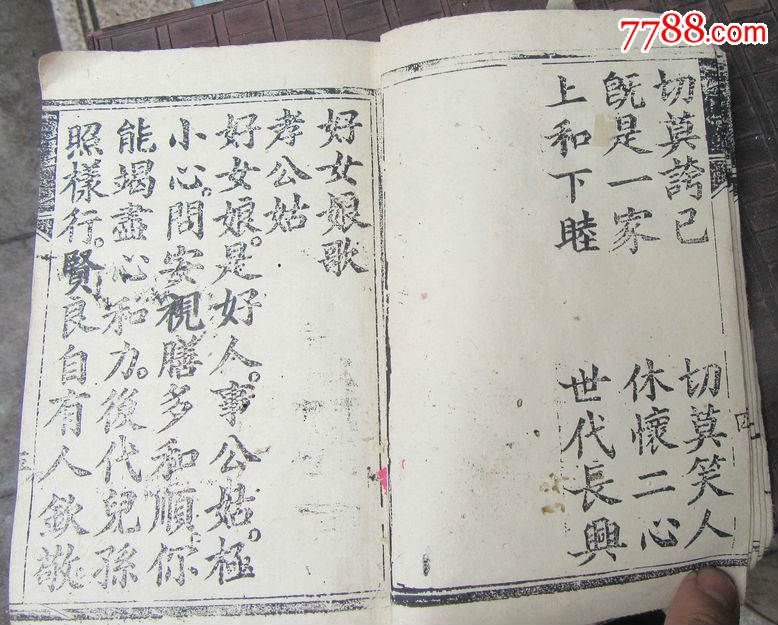 7788.com
切莫誇己 切莫笑人
旣是一家 休懷二心
上和下睦 世代長興
好女娘歌
孝公姑
好女娘。是好人。事公姑。極
小心。問安視膳多和順。你
能竭盡心和力。後代兒孫
照樣行。賢良自有人欽敬